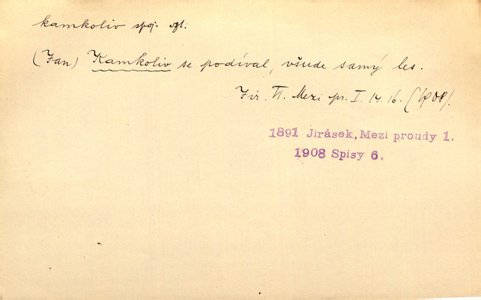 kamkoliv spoj. vzt.
(Jan) Kamkoliv se podíval, všude samý les.
Jir. Mezi pr. I. 14 16. (1908).
1891 Jirásek, Mezi proudy 1.
1908 Spisy 6.